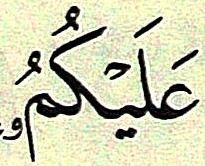 عَلَيْكُمُ و